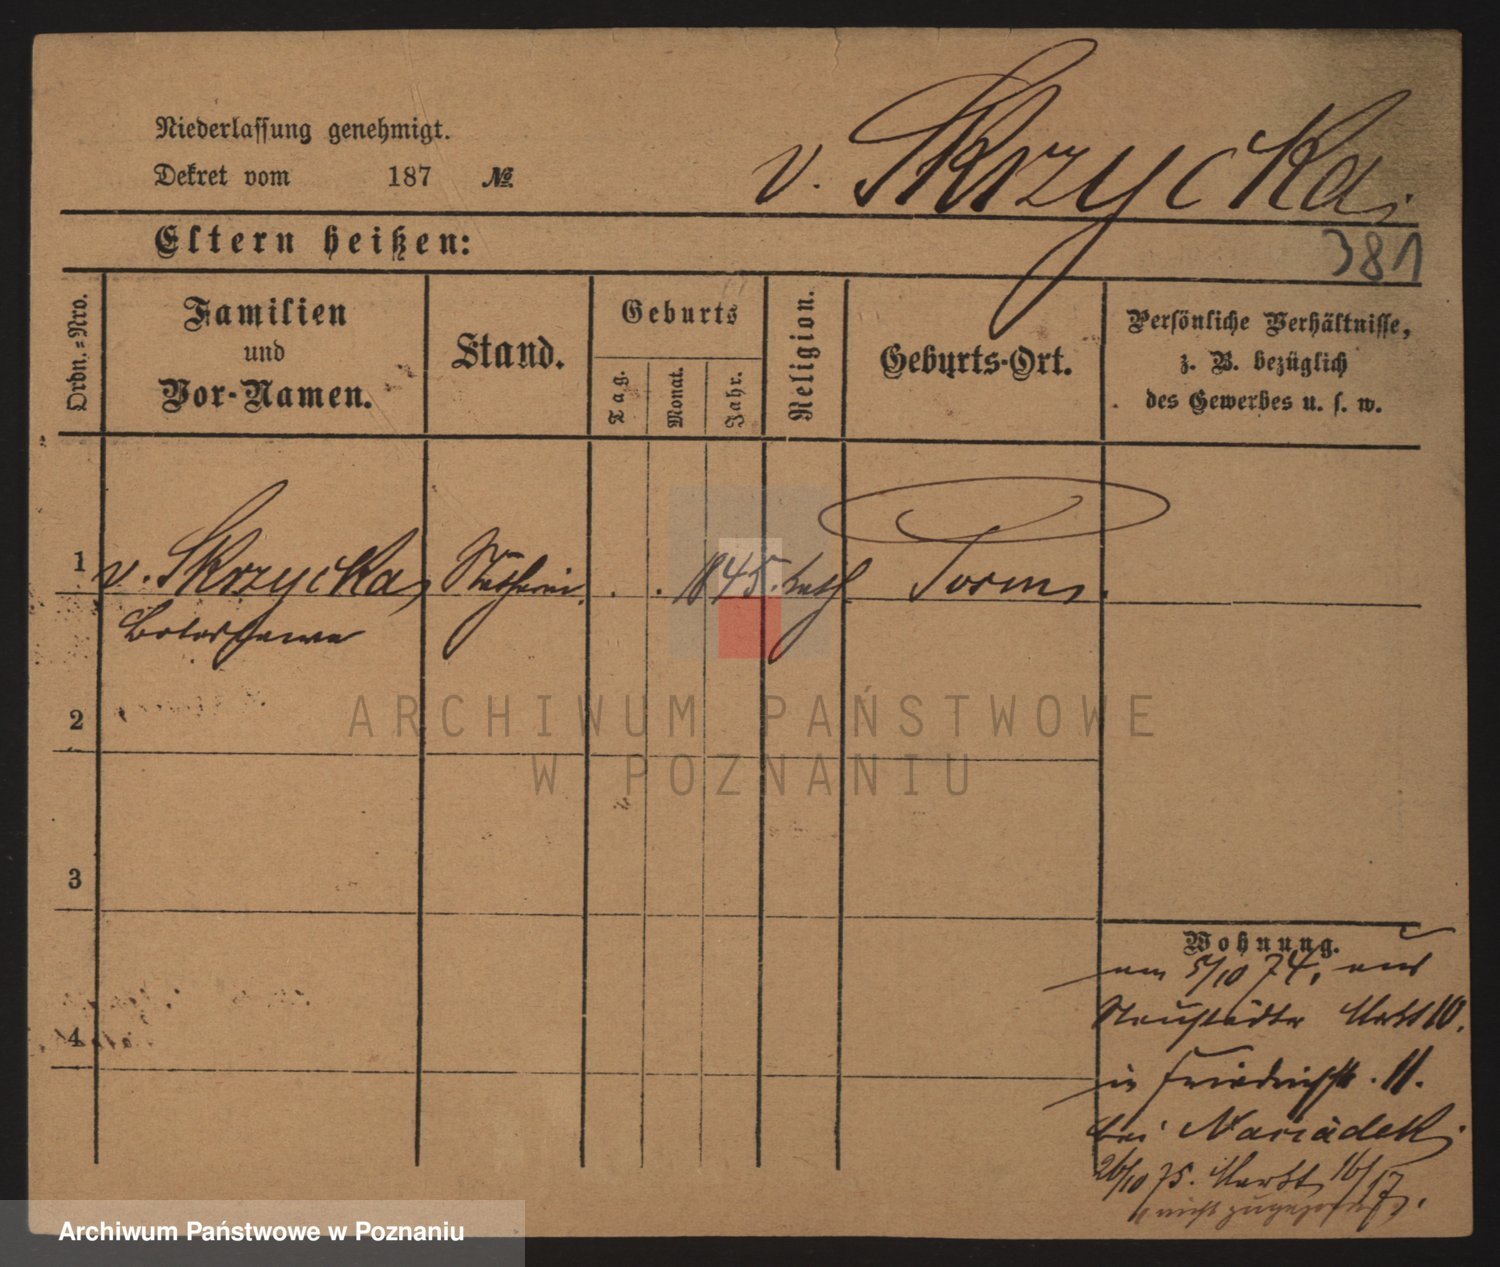 Niederlassung genehmigt.
Dekret vom 187 №
v. Skrzycka.
381
Eltern heißen:
Ordn.=Nro.
Familien
und
Vor-Namen.
Stand.
Geburts
Tag.
Monat.
Jahr.
Religion.
Geburts-Ort.
Persönliche Verhältnisse,
z. B. bezüglich
des Gewerbes u. s. w.
1 v. Skrzycka, . . 1845. kath.
2
3
4
Wohnung.
am 5/10 74, aus
Neustädter Markt 10.
in Friedrichstr. 11.
bei
26/10 75. Markt 16/17.
nicht zugezogen
ARCHIWUM PAŃSTWOWE
W POZNANIU
Archiwum Państwowe w Poznaniu